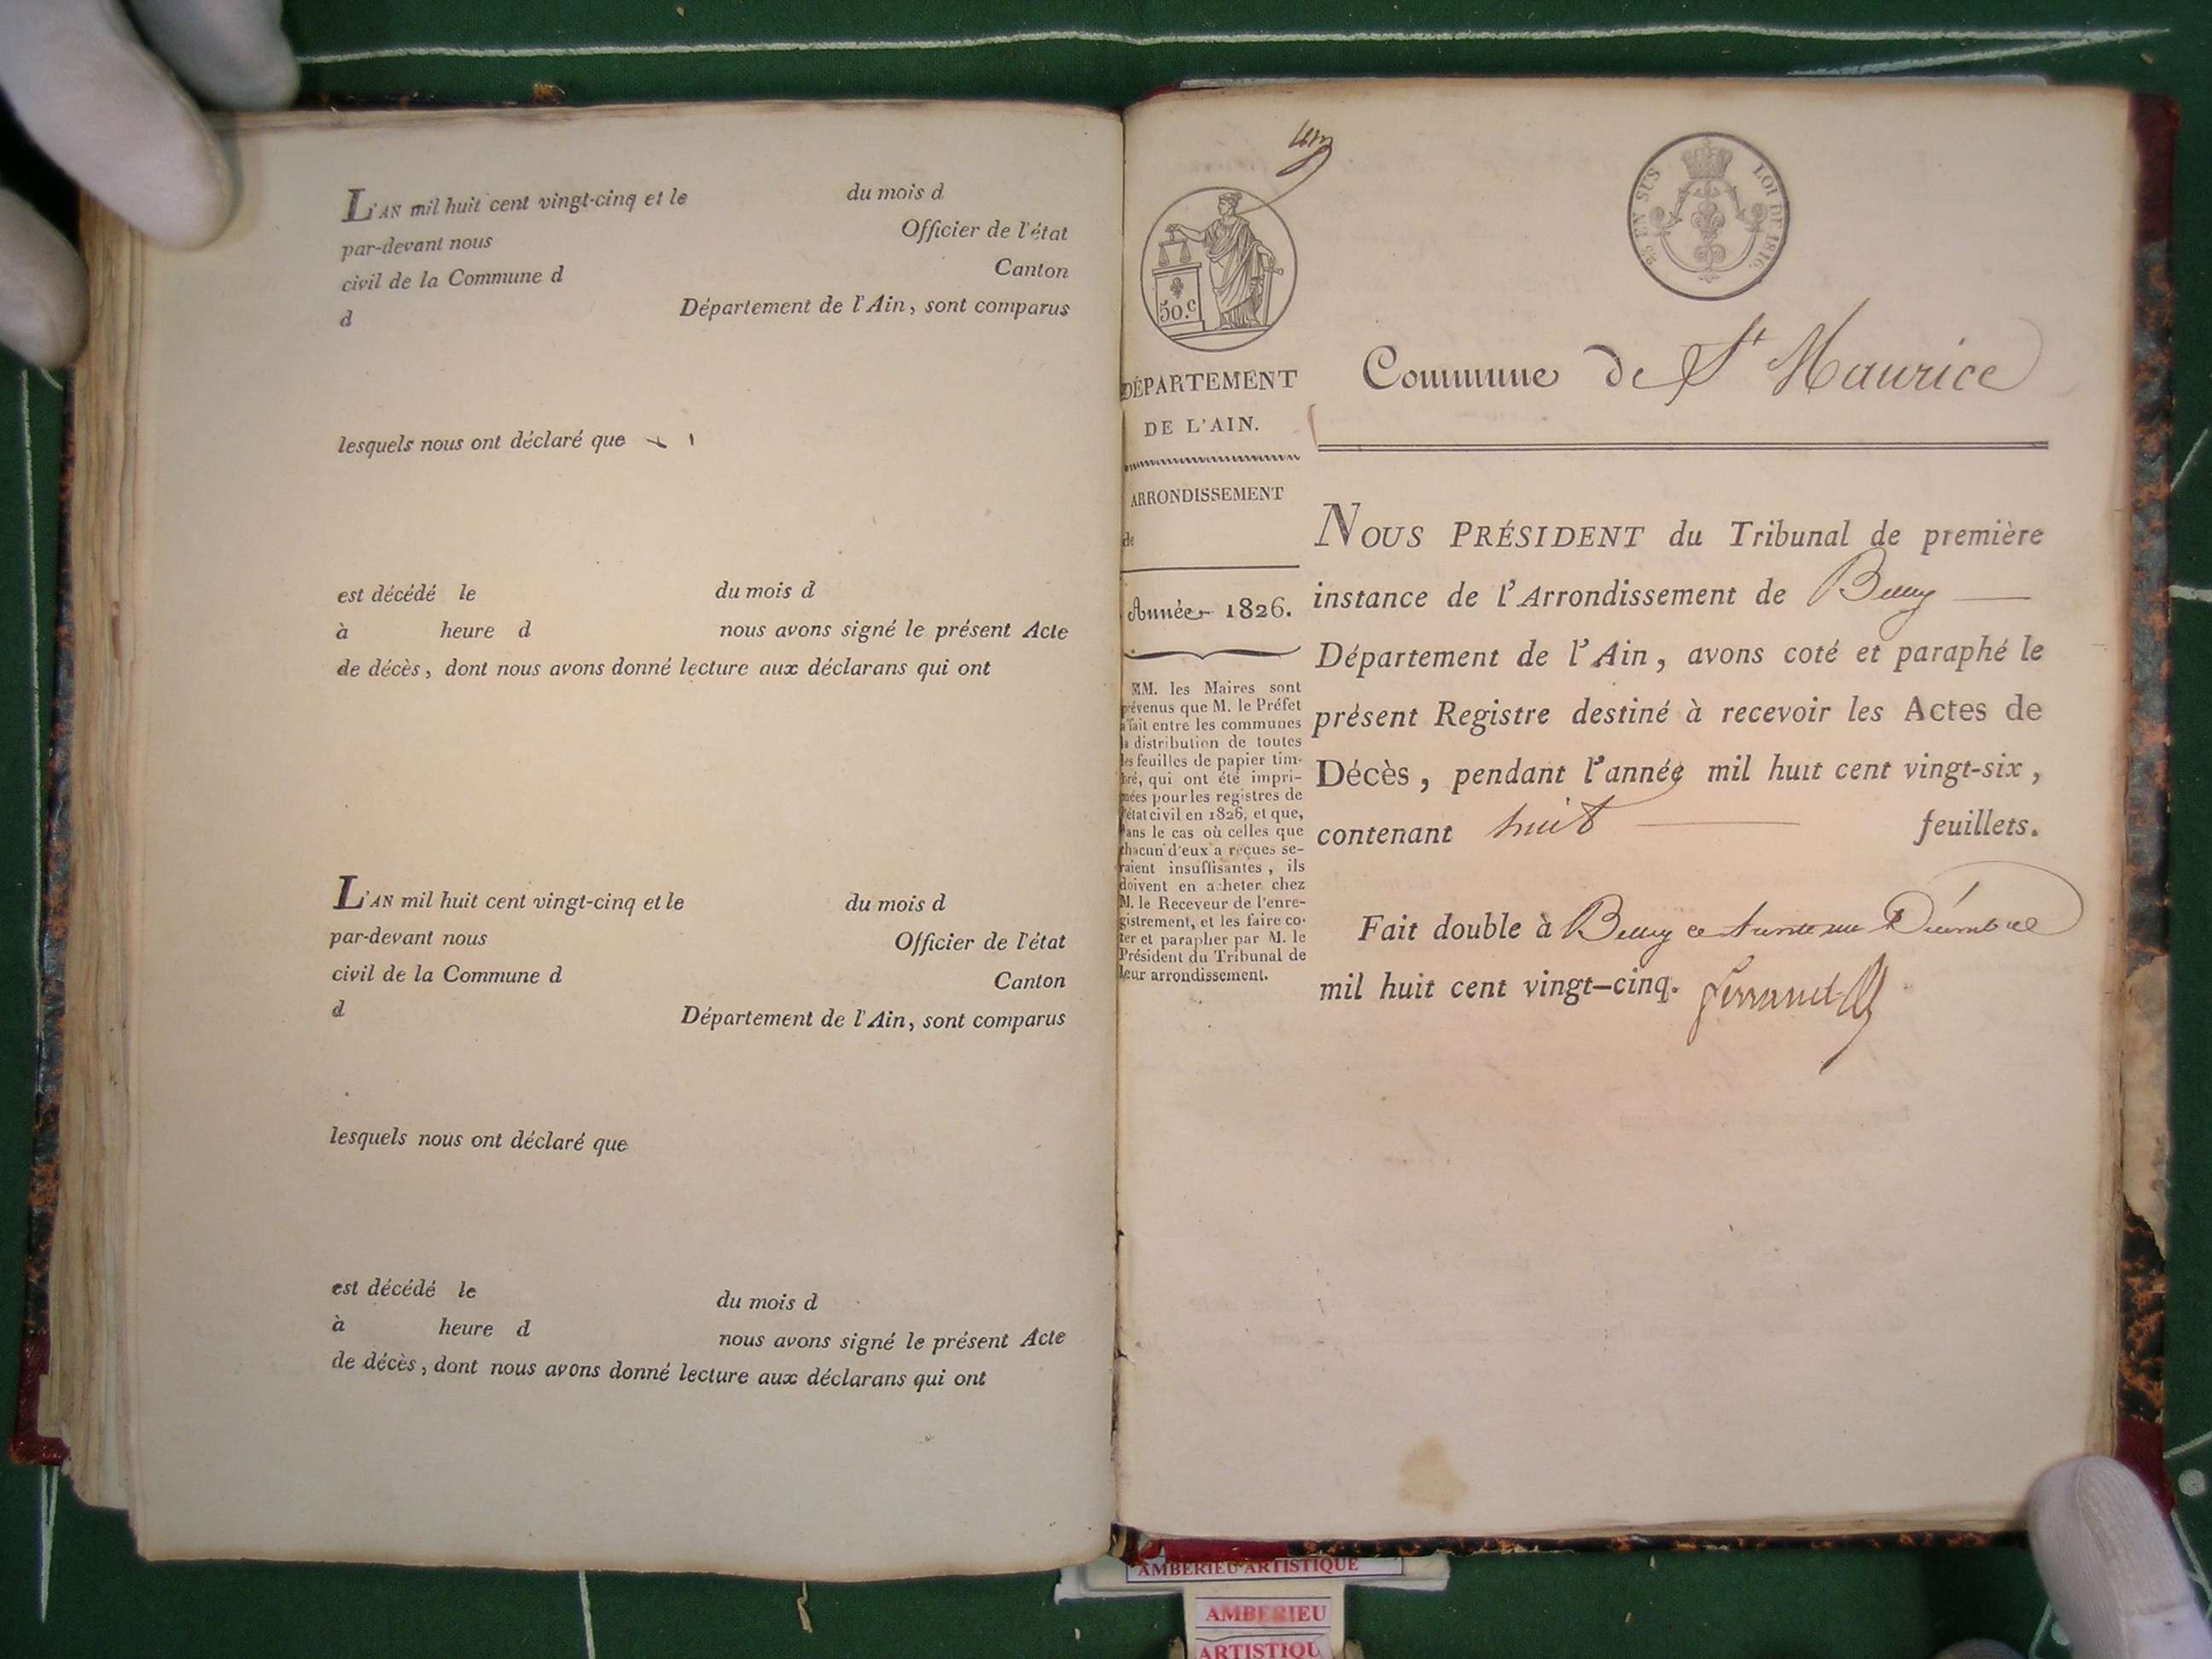 L'AN mil huit cent vingt-cinq et le du mois d
par-devant nous Officier de l'état
civil de la Commune d Canton
d Département de l'Ain, sont comparus
lesquels nous ont déclaré que
est décédé le du mois d
à heure d nous avons signé le présent Acte
de décès, dont nous avons donné lecture aux déclarans qui ont
L'AN mil huit cent vingt-cinq et le du mois d
par-devant nous Officier de l'état
civil de la Commune d Canton
d Département de l'Ain, sont comparus
lesquels nous ont déclaré que
est décédé le du mois d
à heure d nous avons signé le présent Acte
de décès, dont nous avons donné lecture aux déclarans qui ont
50.c
EN SUS LOI DE 1816.
DÉPARTEMENT
DE L'AIN.
ARRONDISSEMENT
de
Année 1826.
MM. les Maires sont
prévenus que M. le Préfet
a fait entre les communes
la distribution de toutes
les feuilles de papier tim-
bré, qui ont été impri-
mées pour les registres de
l'état civil en 1826, et que,
dans le cas où celles que
chacun d'eux a reçues se-
raient insuffisantes, ils
doivent en acheter chez
M. le Receveur de l'enre-
gistrement, et les faire co-
ter et parapher par M. le
Président du Tribunal de
leur arrondissement.
Commune de St Maurice
NOUS PRÉSIDENT du Tribunal de première
instance de l'Arrondissement de Belley
Département de l'Ain, avons coté et paraphé le
présent Registre destiné à recevoir les Actes de
Décès, pendant l'année mil huit cent vingt-six,
contenant huit feuillets.
Fait double à Belley ce trente un Décembre
mil huit cent vingt-cinq.
AMBERIEU ARTISTIQUE
AMBERIEU
ARTISTIQU